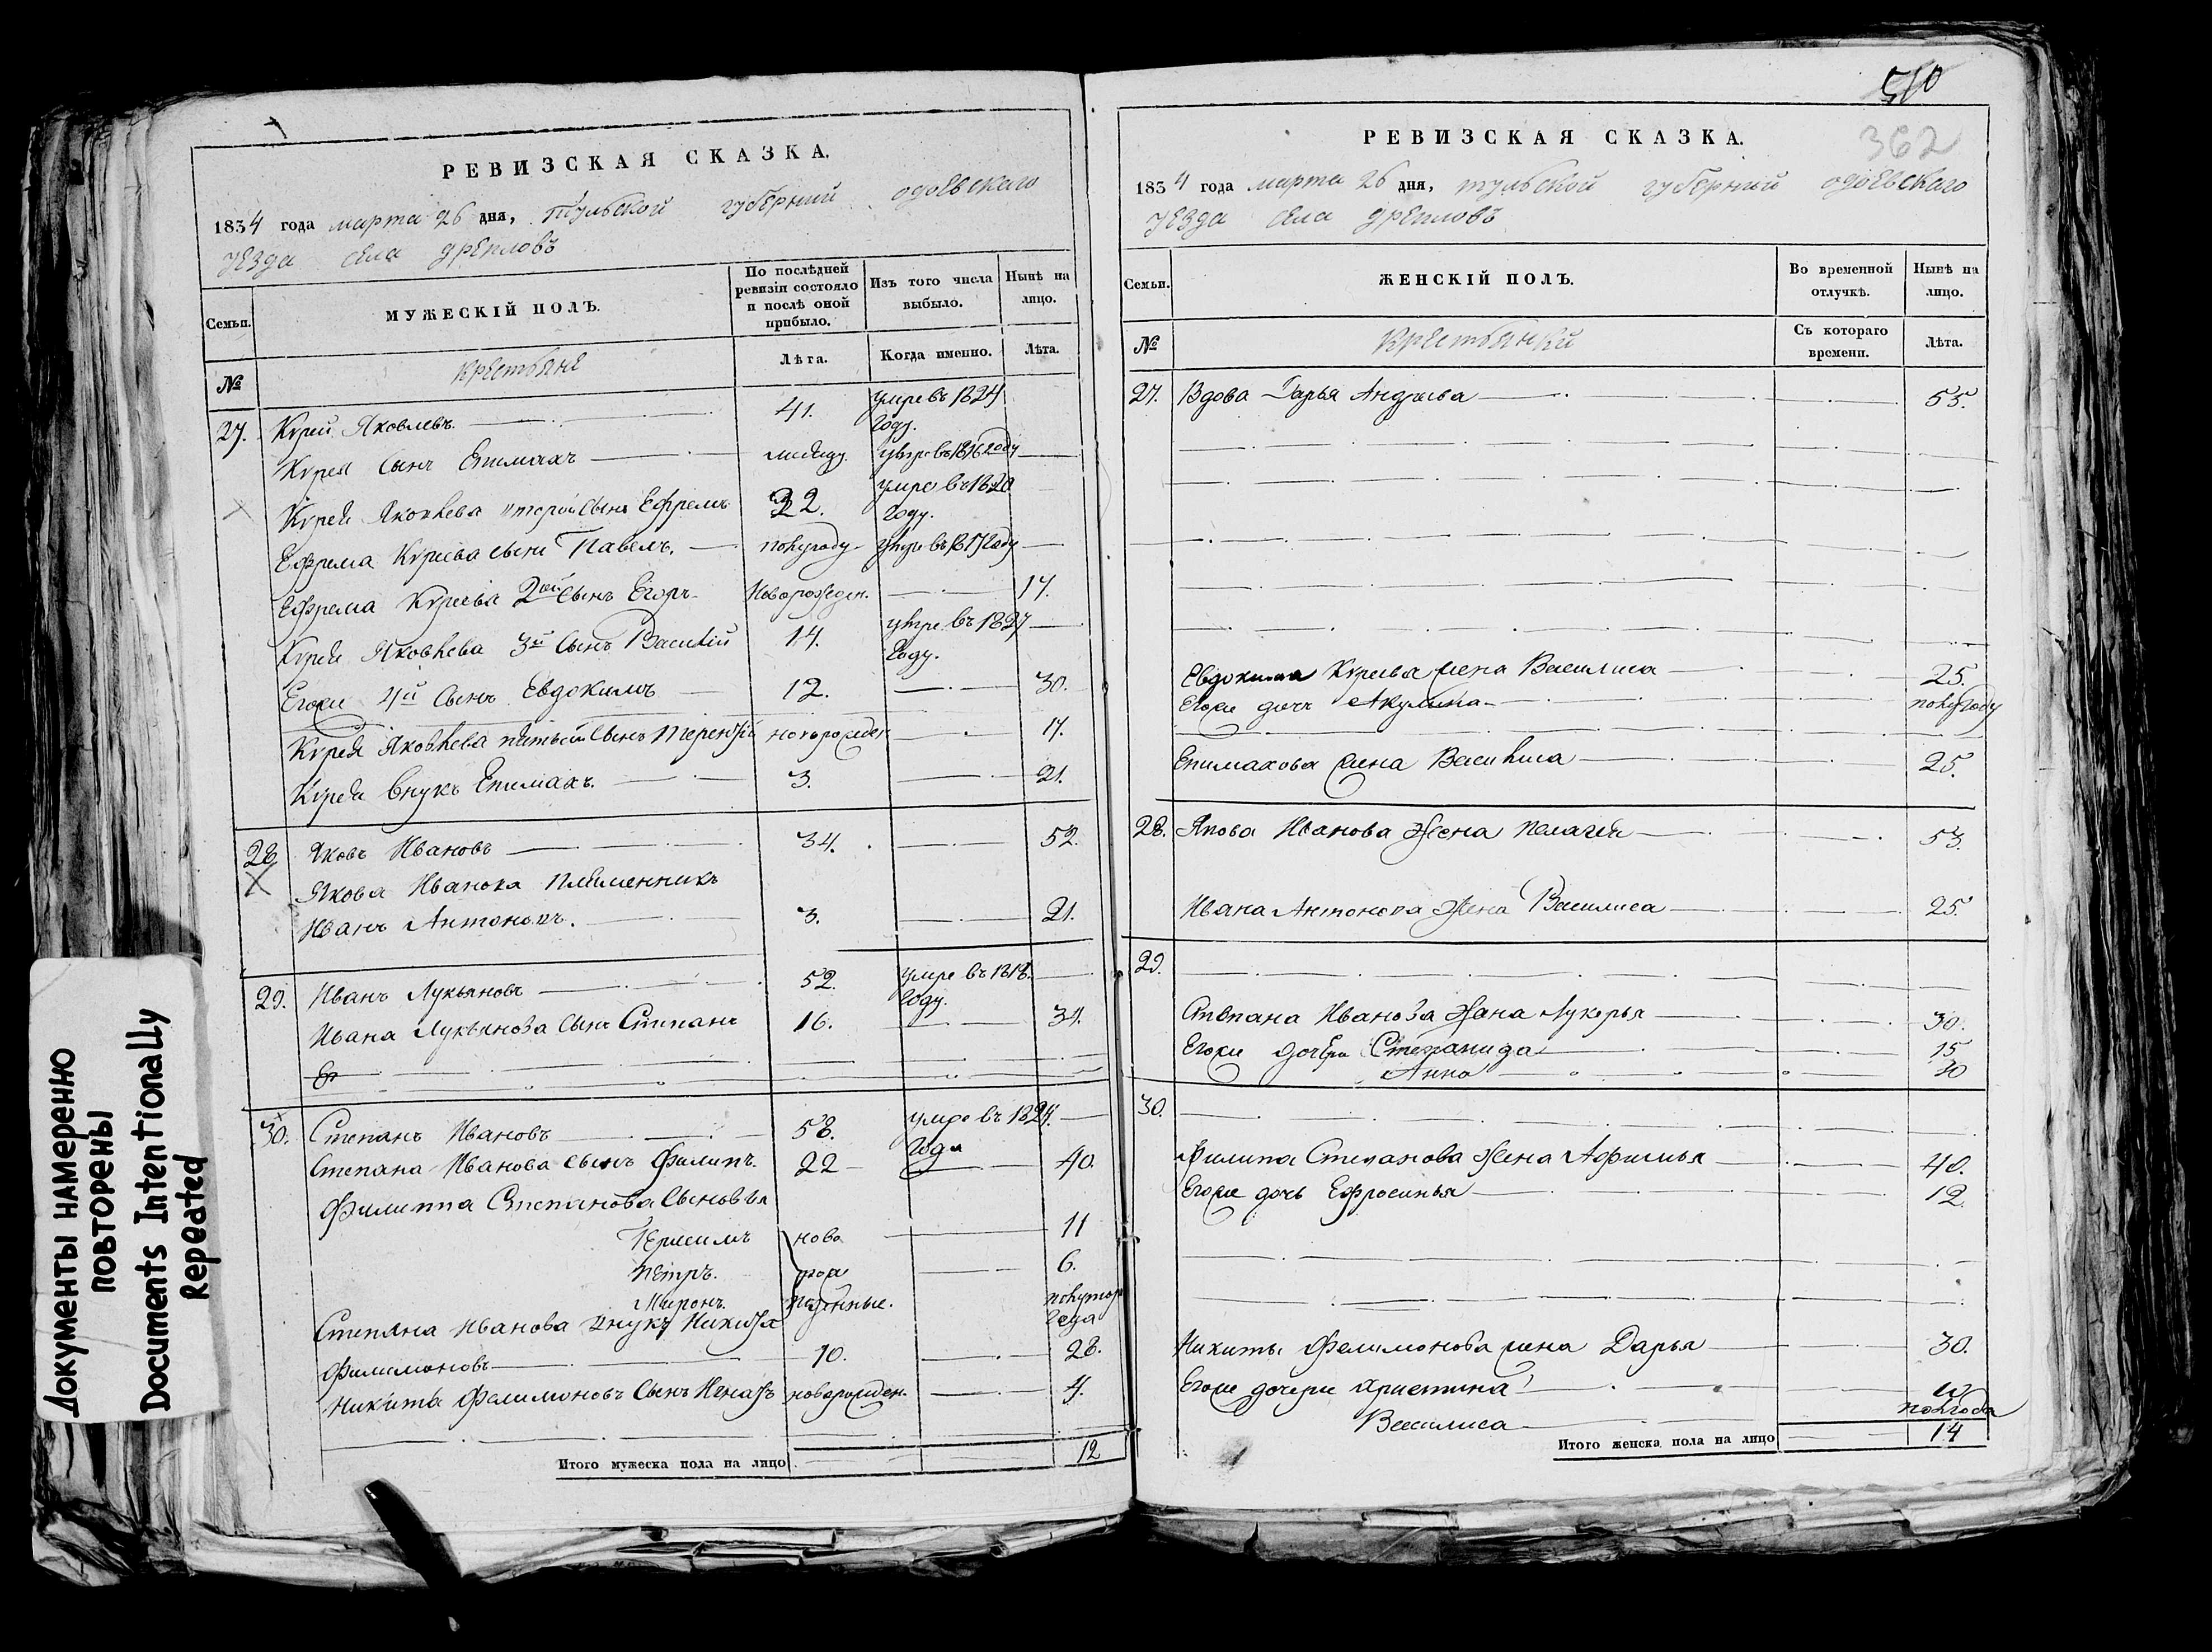 510
362
РЕВИЗСКАЯ СКАЗКА.
1834 года марта 26 дня, Тульской губерний одоевскаго
уезда села Дреплов
Семьи.
МУЖЕСКІЙ ПОЛЪ.
По послѣдней ревизіи состояло и послѣ оной прибыло.
Изъ того числа выбыло.
Нынѣ на лицо.
№
крестьяне
Лѣта.
Когда именно.
Лѣта.
27. Курей Яковлевъ 41. умре въ 1824 году.
Курея сынъ Епимахъ умре въ 1816 году
Курея Яковлева второй сынъ Ефремъ 22. умре въ 1820 году.
Ефрема Куреева сынъ Павелъ. полугоду умре въ 1817 году
Ефрема Куреева 2ой сынъ Егоръ Новорожден. 17.
Курея Яковлева 3й сынъ Василий 14. умре въ 1827 году.
Егоже 4й сынъ Евдокимъ 12. 30.
Курея Яковлева пятый сынъ Терентий новорожден 17.
Курея внукъ Епимахъ. 3. 21.
28 Яковъ Ивановъ 34. 52.
Якова Иванова племенникъ
Иванъ Антоновъ. 3. 21.
29. Иванъ Лукьяновъ 52. умре въ 1818. году.
Ивана Лукьянова сынъ Степанъ 16. 34.
30. Степанъ Ивановъ 58. умре въ 1824. года
Степана Иванова сынъ Филипъ. 22 40.
Филиппа Степанова сыновья
Герасимъ ново 11
Петръ. рож 6.
Миронъ. денные. полутор года
Степана Иванова внукъ Никита
Филимоновъ 10. 28.
Никиты Филимоновъ сынъ Игнатъ новорожден. 4.
Итого мужеска пола на лицо 12
РЕВИЗСКАЯ СКАЗКА.
1834 года марта 26 дня, тульской губерний одоевскаго
уезда села Дреплов
Семьи.
ЖЕНСКІЙ ПОЛЪ.
Во временной отлучкѣ.
Нынѣ на лицо.
№
крестьянки
Съ котораго времени.
Лѣта.
27. Вдова Дарья Андреева 55.
Евдокима Куреева жена Василиса 25.
Егоже дочь Акулина полугоду
Епимахова жена Василиса 25.
28. Якова Иванова жена Пелагея 53.
Ивана Антонова жена Василиса 25.
29.
Степана Иванова жена Лукерья 30.
Егоже дочери Степанида 15
Анна 10
30.
Филипа Степанова жена Афимья 40.
Егоже дочь Ефросинья 12
Никиты Филимонова жена Дарья 30.
Егоже дочери Христина
Василиса полгода
Итого женска пола на лицо 14
Документы намеренно
повторены
Documents Intentionally
Repeated